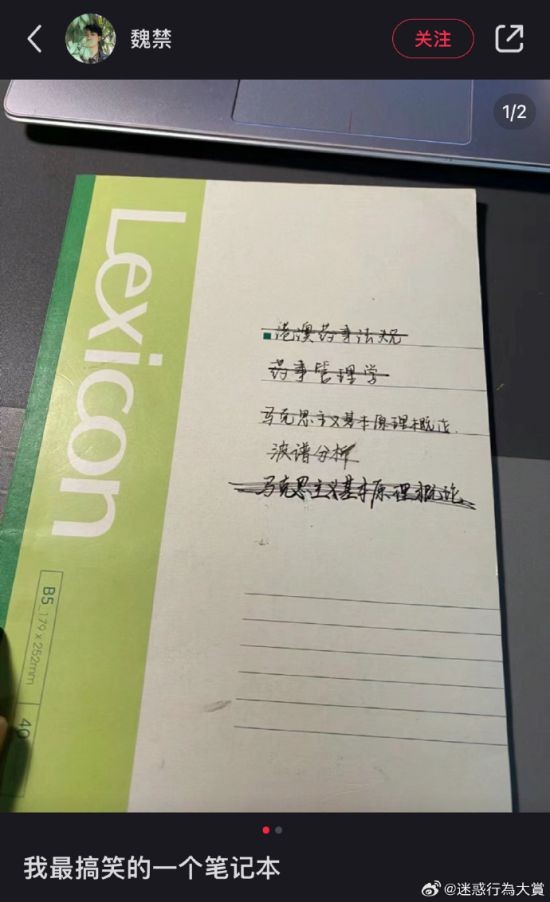 魏禁
关注
1/2
Lexicon
港澳药事法规
药事管理学
马克思主义基本原理概论.
波谱分析
马克思主义基本原理概论.
B5_179×252mm
40
我最搞笑的一个笔记本
@迷惑行為大賞